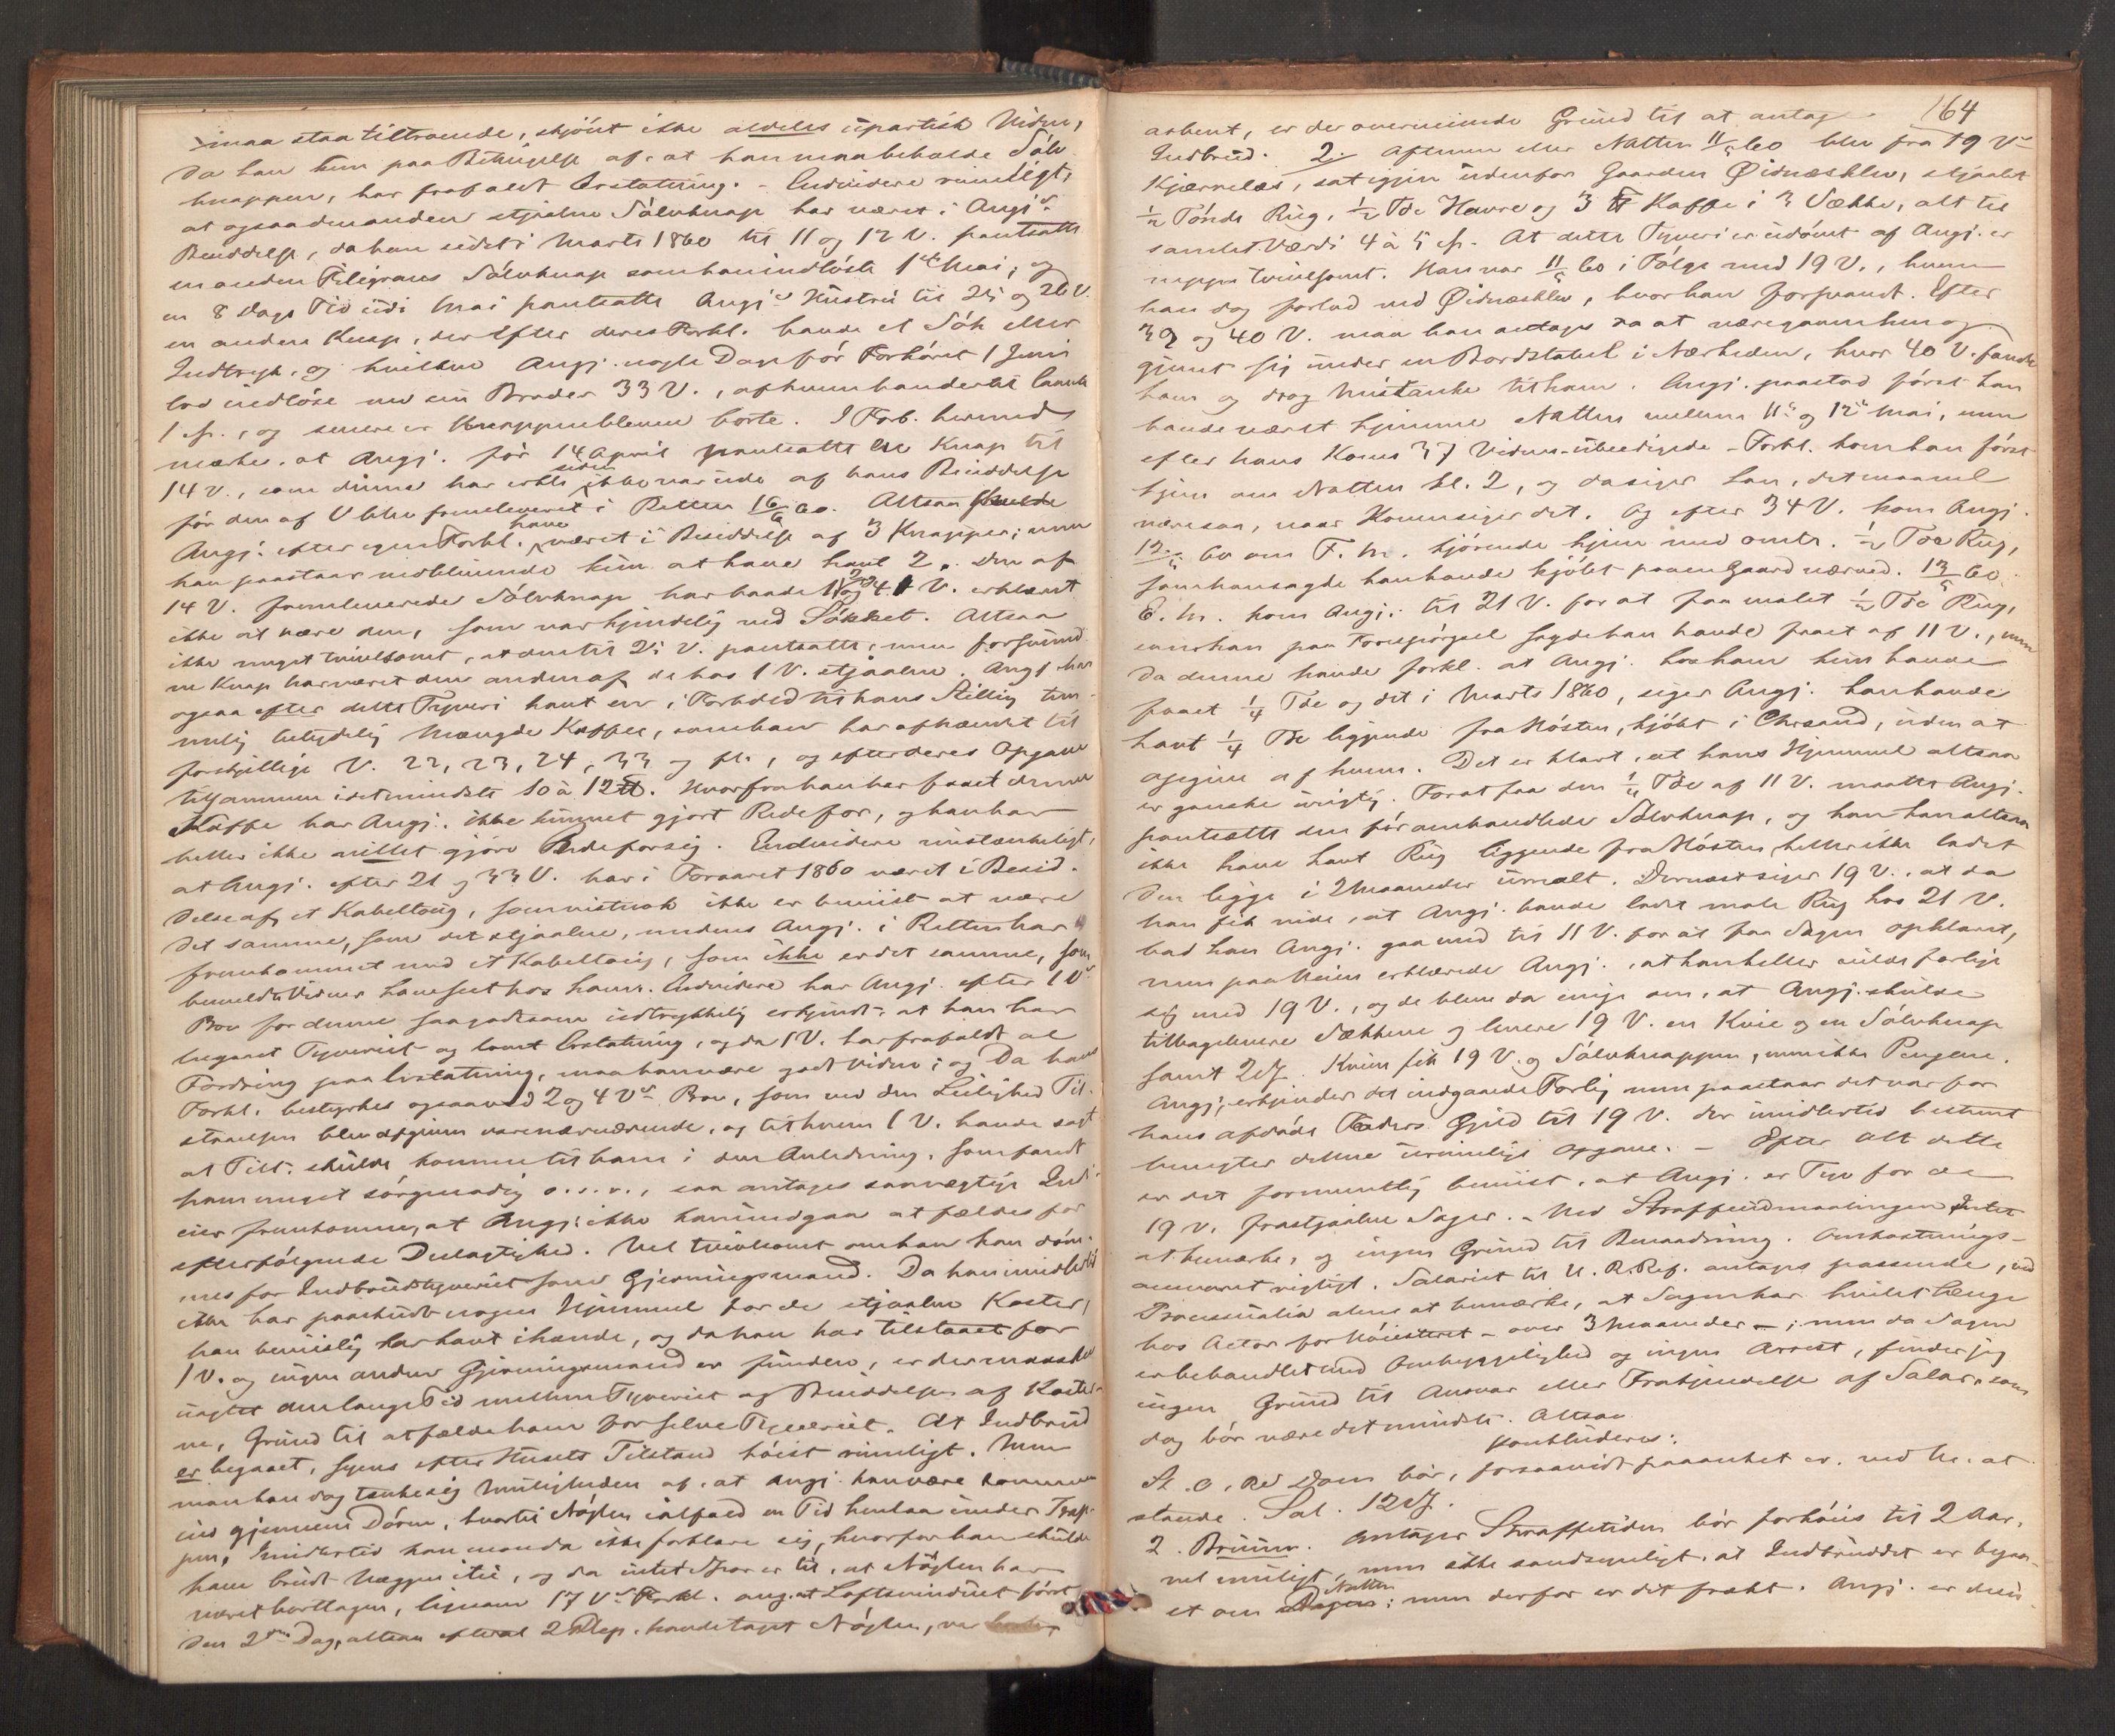 maa staa tiltroende, skjönt ikke aldeles upartisk Vidne,
da han kun paa Betingelse af, at han maa beholde Sölv
knappen, har frafaldt Erstatning. - Endvidere rimeligt,
at ogsaa den anden stjaalne Sölvknap har været i Angj's
Besiddelse, da han sidst i Marts 1860 til 11 og 12 V. pantsatte
en anden Filigrans Sölvknap som han indlöste 1ste Mai, og
en 8 Dags Tid ud i Mai pantsatte Angj's Hustru til 25 og 26 V.
en anden Knap, der efter deres Forkl. havde et Sök eller
Indtryk, og hvilken Angj. nogle Dage för Forhöret 1 Juni
lod indlöse ved sin Broder 33 V., af hvem han dertil laante
1 Sp., og senere er Knappen bleven borte. I Forb. hermed
mærkes, at Angj. för 14 April pantsatte en Knap til
14 V., som denne har erkl. siden ikke var ude af hans Besiddelse
för den af V blev fremleveret i Retten 16/6 60. Altsaa skulde
Angj. efter egen Forkl. have været i Besiddelse af 3 Knapper; men
han paastaar vedblivende kun at have havt 2. Den af
14 V. fremleverede Sölvknap har baade 1, 2 og 4 V. erklæret
ikke at være den, som var kjendelig ved Sökket. Altsaa
ikke meget tvivlsomt, at den til 25 V. pantsatte, men forsvund-
ne Knap har været den anden af de hos 1 V. stjaalne. Angj. har
ogsaa efter dette Tyveri havt en i Forhold til hans Stilling tem-
melig betydelig Mængde Kaffe, som han har afhændet til
forskjellige V. 22, 23, 24, 33 og fl., og efter deres Opgave
tilsammen i det mindste 10 à 12 ℔. Hvorfra han har faaet denne
Kaffe har Angj. ikke kunnet gjort Rede for, og han har
heller ikke villet gjöre Rede for sig. Endvidere mistænkeligt,
at Angj. efter 21 og 33 V. har i Foraaret 1860 været i Besid-
delse af et Kabeltoug, som vistnok ikke er beviist at være
det samme, som det stjaalne, medens Angj. i Retten har
fremkommet med et Kabeltoug, som ikke er det samme, som
bemeldte Vidner have seet hos ham. Endvidere har Angj. efter 1 V's
Prov for denne saagodtsom udtrykkelig erkjendt, at han har
begaaet Tyveriet og lovet Erstatning, og da 1 V. har frafaldt al
Fordring paa Erstatning, maa han være godt Vidne; og da hans
Forkl. bestyrkes ogsaa ved 2 og 4 V's Prov, som ved den Leilighed Til-
staaelsen blev afgiven vare nærværende, og til hvem 1 V. havde sagt
at Tilt. skulde komme til ham i den Anledning, som fandt
ham meget sörgmodig o.s.v., saa antages saa vægtige Indi-
cier fremkomne, at Angj. ikke kan undgaa at fældes for
efterfölgende Delagtighed. Vel tvivlsomt om han kan döm-
mes for Indbrudstyveriet som Gjerningsmand. Da han imidlertid
ikke har paaskudt nogen Hjemmel for de stjaalne Koster,
han beviislig har havt ihænde, og da han har tilstaaet for
1 V. og ingen anden Gjerningsmand er funden, er der maaskee
uagtet den lange Tid mellem Tyveriet og Besiddelsen af Koster-
ne, Grund til at fælde ham for selve Tyveriet. At Indbrud
er begaaet, synes efter Husets Tilstand höist rimeligt. Men
man kan dog tænke sig Muligheden af, at Angj. kan være kommen
ind gjennem Dören, hvortil Nöglen ialfald en Tid henlaa under Trap-
pen, imidlertid kan man da ikke forklare sig, hvorfor han skulde
have brudt Væggen itu, og da intet Spor er til, at Nöglen har
været borttagen, ligesom 17 V's Forkl. ang. at Loftsvinduet först
den 2den Dag, altsaa efterat 2 Rep. havde taget Nöglen, var
164
aabent, er der overveiende Grund til at antage
Indbrud. 2. Aftenen eller Natten 11/5 60 blev fra 19 V's
Kjærrelæs, sat igjen udenfor Gaarden Øidnæsklev, stjaalet
1/2 Tönde Rug, 1/2 Tde Havre og 3 ℔ Kaffe i 3 Sække, alt til
samlet Værdi 4 à 5 Sp. At dette Tyveri er udövet af Angj. er
neppe tvivlsomt. Han var 11/5 60 i Fölge med 19 V., hvem
han dog forlod ved Øidnæsklev, hvor han forsvandt. Efter
39 og 40 V. maa han antages da at være gaaen hen og
gjemt sig under en Bordstabel i Nærheden, hvor 40 V. fandt
ham og drog Mistanke til ham. Angj. paastod först han
havde været hjemme Natten mellem 11te og 12te Mai, men
efter hans Kones 37 Vidnes - ubeedigede - Forkl. kom han först
hjem om Natten kl. 2, og da siger han, det maa vel
være saa, naar Konen siger det. Og efter 34 V. kom Angj.
12/5 60 om F. M. kjörende hjem med omtr. 1/2 Tde Rug,
som han sagde han havde kjöbt paa en Gaard nærved. 13/5 60
E. M. kom Angj. til 21 V. for at faa malet 1/2 Tde Rug,
som han paa Forespörgsel sagde han havde faaet af 11 V., men
da denne havde forkl. at Angj. hos ham kun havde
faaet 1/4 Tde og det i Marts 1860, siger Angj. han havde
havt 1/4 Tde liggende fra Hösten, kjöbt i Chrsand, uden at
opgive af hvem. Det er klart, at hans Hjemmel altsaa
er ganske urigtig. For at faa den 1/4 Tde af 11 V. maatte Angj.
pantsætte den för omhandlede Sölvknap, og kan han altsaa
ikke have havt Rug liggende fra Hösten, heller ikke ladet
den ligge i 2 Maaneder umalt. Dernæst siger 19 V., at da
han fik vide, at Angj. havde ladet male Rug hos 21 V.
bad han Angj. gaa med til 11 V. for at faa Sagen opklaret,
men paa Veien erklærede Angj., at han heller vilde forlige
sig med 19 V., og de bleve da enige om, at Angj. skulde
tilbagelevere Sækkene og levere 19 V. en Kvie og en Sölvknap
samt 2 Sp. Kvien fik 19 V. og Sölvknappen, men ikke Pengene.
Angj. erkjender det indgaaede Forlig men paastaar det var for
hans afdöde Faders Gjeld til 19 V. der imidlertid bestemt
benegter denne urimelige Opgave. - Efter Alt dette
er det formentlig beviist, at Angj. er Tyv for de
19 V. frastjaalne Sager. - Ved Straffeudmaalingen Intet
at bemærke, og ingen Grund til Benaadning. Omkostnings-
ansvaret rigtigt. Salariet til U. R. Ref. antages passende, ved
Processualia alene at bemærke, at Sagen har hvilet længe
hos Actor for Höiesteret - over 3 Maaneder -; men da Sagen
er behandlet med Omhyggelighed og ingen Arrest, finder jeg
ingen Grund til Ansvar eller Frakjendelse af Salar., som
dog bör være det mindste. Altsaa
konkluderes:
St. O. Rs Dom bör, forsaavidt paaanket er, ved M. at
stande. Sal. 12 Sp.
2. Bruun. Antager Straffetiden bör forhöies til 2 Aar.
vel muligt, men ikke sandsynligt, at Indbruddet er begaa-
et om Natten; men derfor er det frækt. Angj. er desu-